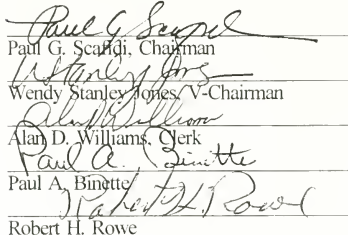 Paul G Scafidi
Paul G. Scafidi, Chairman
W Stanley Jones
Wendy Stanley Jones, V-Chairman
Alan D Williams
Alan D. Williams, Clerk
Paul A. Binette
Paul A. Binette
Robert H. Rowe
Robert H. Rowe